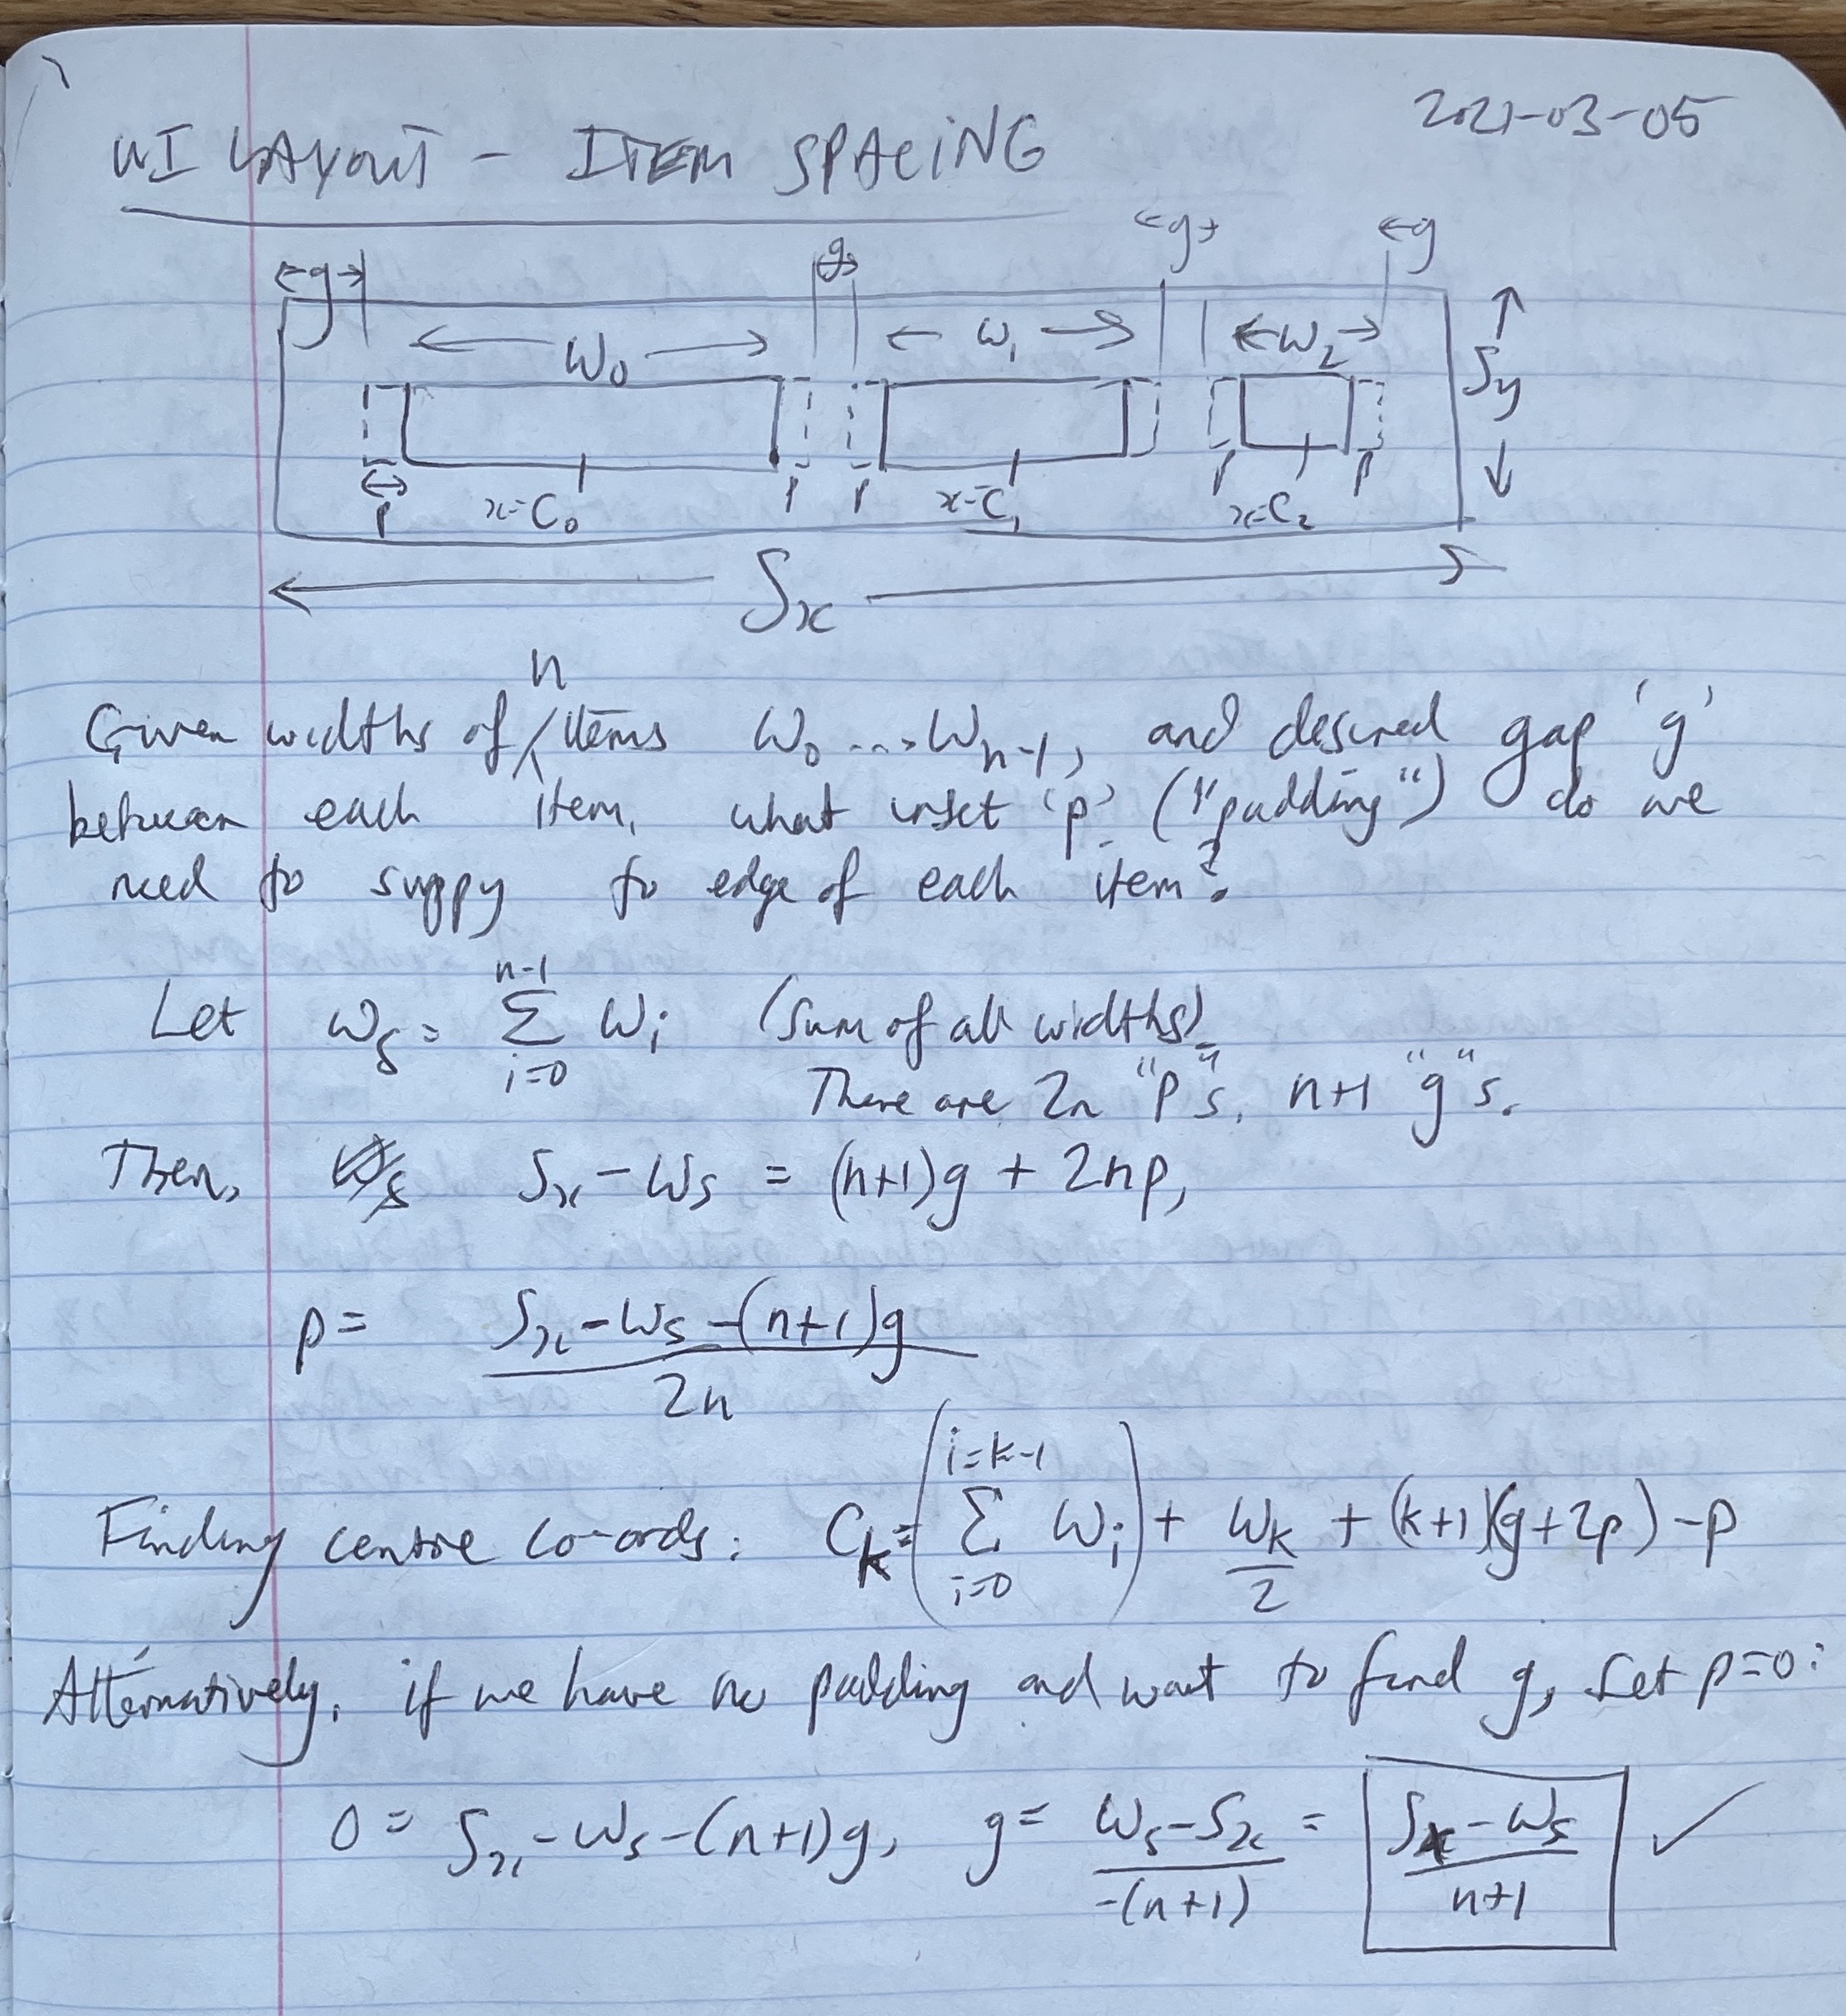 2021-03-05
UI LAYOUT - ITEM SPACING
←g→ g ←g→ ←g
← W₀ → ← W₁ → ← W₂ →
Sy
p x=C₀ p p x=C₁ p x=C₂ p
Sx
n
Given widths of / items W₀ .... Wₙ₋₁, and desired gap 'g'
between each item, what inset 'p' ("padding") do we
need to suppy to edge of each item?
Let Ws = Σ_{i=0}^{n-1} Wi (sum of all widths)
There are 2n "p"s, n+1 "g"s.
Then, Ws Sx - Ws = (n+1)g + 2np,
p = (Sx - Ws - (n+1)g) / 2n
Finding centre co-ords: Ck = (Σ_{i=0}^{i=k-1} Wi) + Wk/2 + (k+1)(g+2p) - p
Alternatively, if we have no padding and want to find g, let p=0:
0 = Sx - Ws - (n+1)g, g = (Ws - Sx) / -(n+1) = (Sx - Ws) / n+1 ✓